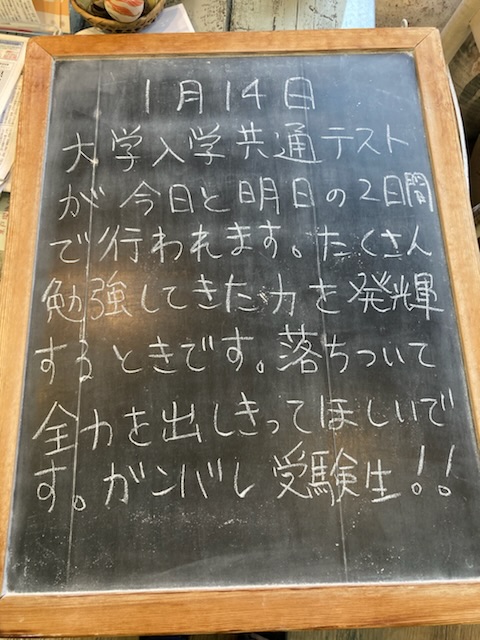 1月14日
大学入学共通テスト
が今日と明日の2日間
で行われます。たくさん
勉強してきた力を発輝
するときです。落ちついて
全力を出しきってほしいで
す。ガンバレ受験生!!